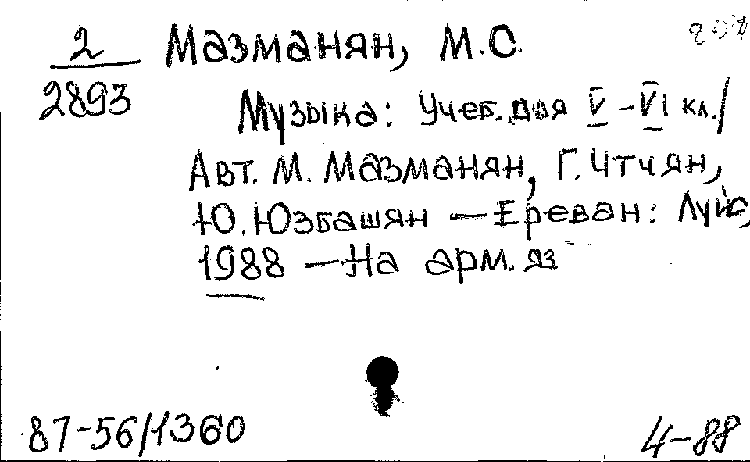 2 Мазманян, М.С.
2893
Музыка: Учеб. для V-VI кл./
Авт. М. Мазманян, Г. Чтчян,
Ю. Юзбашян — Ереван: Луйс,
1988 — На арм. яз
87-56/1360
4-88